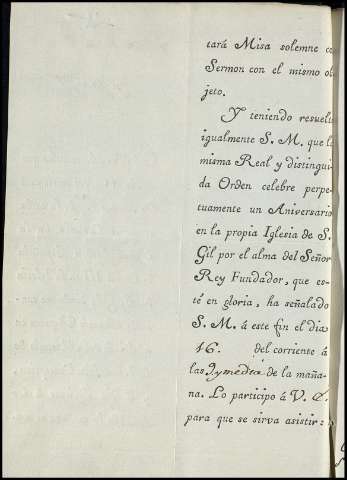 tará Misa solemne co
Sermon con el mismo ob
jeto.
Y teniendo resuelt
igualmente S. M. que la
misma Real y distingui
da Orden celebre perpe
tuamente un Aniversario
en la propia Iglesia de S.
Gil por el alma del Señor
Rey Fundador, que es-
té en gloria, ha señalado
S. M. á este fin el dia
16. del corriente á
las 9 y media de la maña-
na. Lo participo á V. E.
para que se sirva asistir: